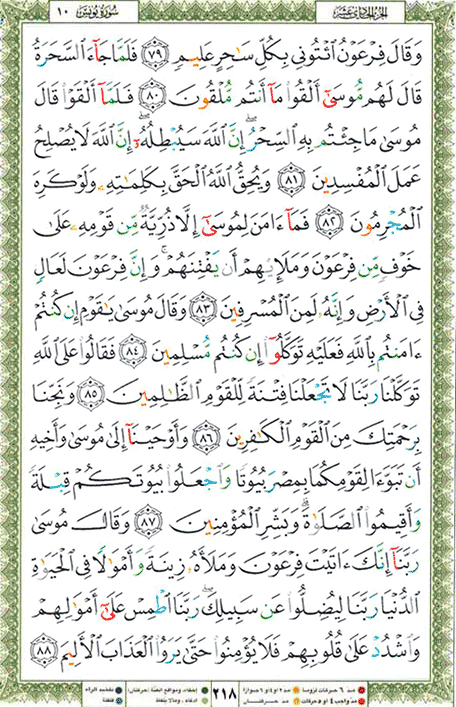 سُورَةُ يُونُسَ ١٠
الجُزْءُ الحَادِي عَشَرَ
وَقَالَ فِرْعَوْنُ ٱئْتُونِى بِكُلِّ سَٰحِرٍ عَلِيمٍ ۝٧٩ فَلَمَّا جَآءَ ٱلسَّحَرَةُ
قَالَ لَهُم مُّوسَىٰٓ أَلْقُوا۟ مَآ أَنتُم مُّلْقُونَ ۝٨٠ فَلَمَّآ أَلْقَوْا۟ قَالَ
مُوسَىٰ مَا جِئْتُم بِهِ ٱلسِّحْرُ ۖ إِنَّ ٱللَّهَ سَيُبْطِلُهُۥٓ ۖ إِنَّ ٱللَّهَ لَا يُصْلِحُ
عَمَلَ ٱلْمُفْسِدِينَ ۝٨١ وَيُحِقُّ ٱللَّهُ ٱلْحَقَّ بِكَلِمَٰتِهِۦ وَلَوْ كَرِهَ
ٱلْمُجْرِمُونَ ۝٨٢ فَمَآ ءَامَنَ لِمُوسَىٰٓ إِلَّا ذُرِّيَّةٌ مِّن قَوْمِهِۦ عَلَىٰ
خَوْفٍ مِّن فِرْعَوْنَ وَمَلَإِي۟هِمْ أَن يَفْتِنَهُمْ ۚ وَإِنَّ فِرْعَوْنَ لَعَالٍ
فِى ٱلْأَرْضِ وَإِنَّهُۥ لَمِنَ ٱلْمُسْرِفِينَ ۝٨٣ وَقَالَ مُوسَىٰ يَٰقَوْمِ إِن كُنتُمْ
ءَامَنتُم بِٱللَّهِ فَعَلَيْهِ تَوَكَّلُوٓا۟ إِن كُنتُم مُّسْلِمِينَ ۝٨٤ فَقَالُوا۟ عَلَى ٱللَّهِ
تَوَكَّلْنَا رَبَّنَا لَا تَجْعَلْنَا فِتْنَةً لِّلْقَوْمِ ٱلظَّٰلِمِينَ ۝٨٥ وَنَجِّنَا
بِرَحْمَتِكَ مِنَ ٱلْقَوْمِ ٱلْكَٰفِرِينَ ۝٨٦ وَأَوْحَيْنَآ إِلَىٰ مُوسَىٰ وَأَخِيهِ
أَن تَبَوَّءَا لِقَوْمِكُمَا بِمِصْرَ بُيُوتًا وَٱجْعَلُوا۟ بُيُوتَكُمْ قِبْلَةً
وَأَقِيمُوا۟ ٱلصَّلَوٰةَ ۗ وَبَشِّرِ ٱلْمُؤْمِنِينَ ۝٨٧ وَقَالَ مُوسَىٰ
رَبَّنَآ إِنَّكَ ءَاتَيْتَ فِرْعَوْنَ وَمَلَأَهُۥ زِينَةً وَأَمْوَٰلًا فِى ٱلْحَيَوٰةِ
ٱلدُّنْيَا رَبَّنَا لِيُضِلُّوا۟ عَن سَبِيلِكَ ۖ رَبَّنَا ٱطْمِسْ عَلَىٰٓ أَمْوَٰلِهِمْ
وَٱشْدُدْ عَلَىٰ قُلُوبِهِمْ فَلَا يُؤْمِنُوا۟ حَتَّىٰ يَرَوُا۟ ٱلْعَذَابَ ٱلْأَلِيمَ ۝٨٨
مد ٦ حركات لزوماً مد ٢ أو ٤ أو ٦ جوازاً
مد واجب ٤ أو ٥ حركات مد حركتان
٢١٨
إخفاء، ومواقع الغنّة (حركتان) تفخيم الراء
إدغام، وما لا يلفظ قلقلة